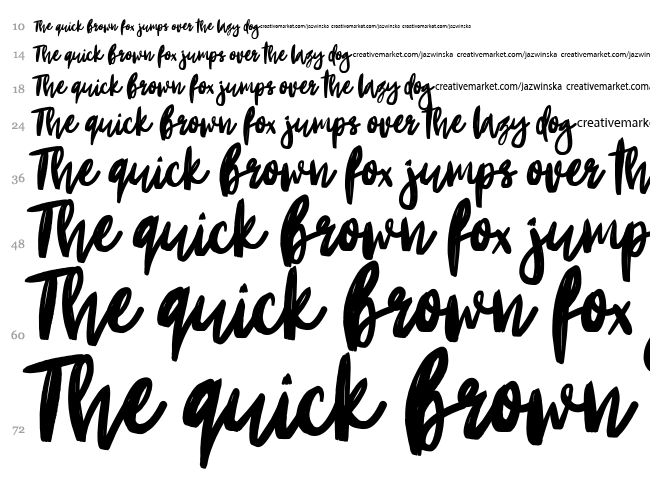 10 The quick brown fox jumps over the lazy dog creativemarket.com/jazwinska creativemarket.com/jazwinska creativemarket.com/jazwinska
14 The quick brown fox jumps over the lazy dog creativemarket.com/jazwinska creativemarket.com/jazwinska creativemarket.com/jazwins
18 The quick brown fox jumps over the lazy dog creativemarket.com/jazwinska creativemarket.com/
24 The quick brown fox jumps over the lazy dog creativemark
36 The quick brown fox jumps over th
48 The quick brown fox jump
60 The quick brown fox
72 The quick brown